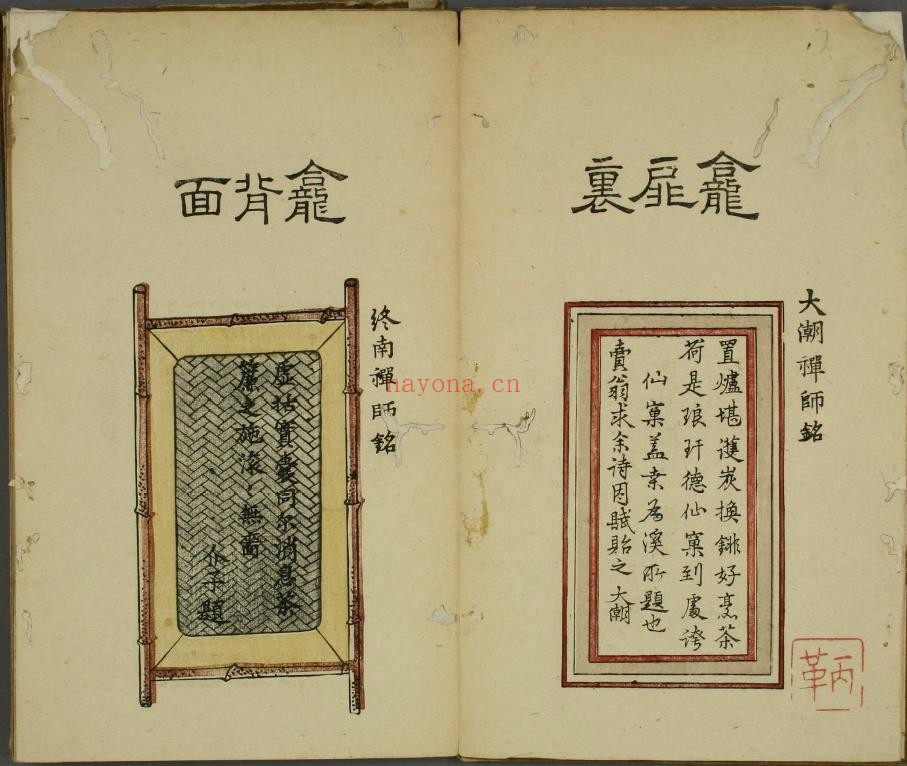 龕扉裏
大潮禪師銘
置爐堪護炭換銚好烹茶
荷是琅玕德仙窠到處誇
仙窠盖桒為溪所題也
賣翁求余詩因賦貽之 大潮
龕背面
終南禪師銘
虛括實囊同尒消息茶
簾之施滾〻無嗇
題
nayona.cn